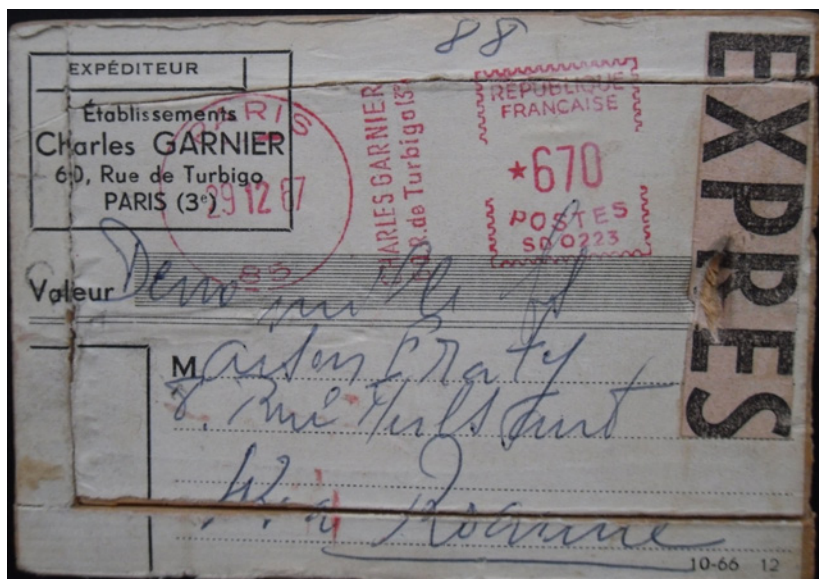 88
EXPÉDITEUR
Établissements
Charles GARNIER
60, Rue de Turbigo
PARIS (3e)
PARIS
29 12 67
85
CHARLES GARNIER
60 R. de Turbigo (3e)
RÉPUBLIQUE
FRANCAISE
★670
POSTES
SD 0223
EXPRES
Valeur
Maison
8. Rue
Roanne
10-66 12